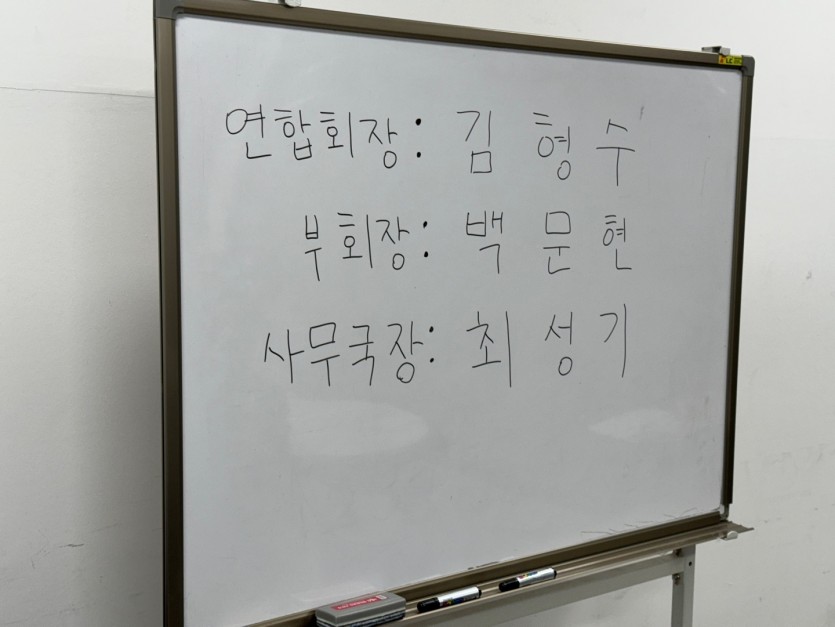 연합회장: 김 형 수
부회장: 백 문 현
사무국장: 최 성 기